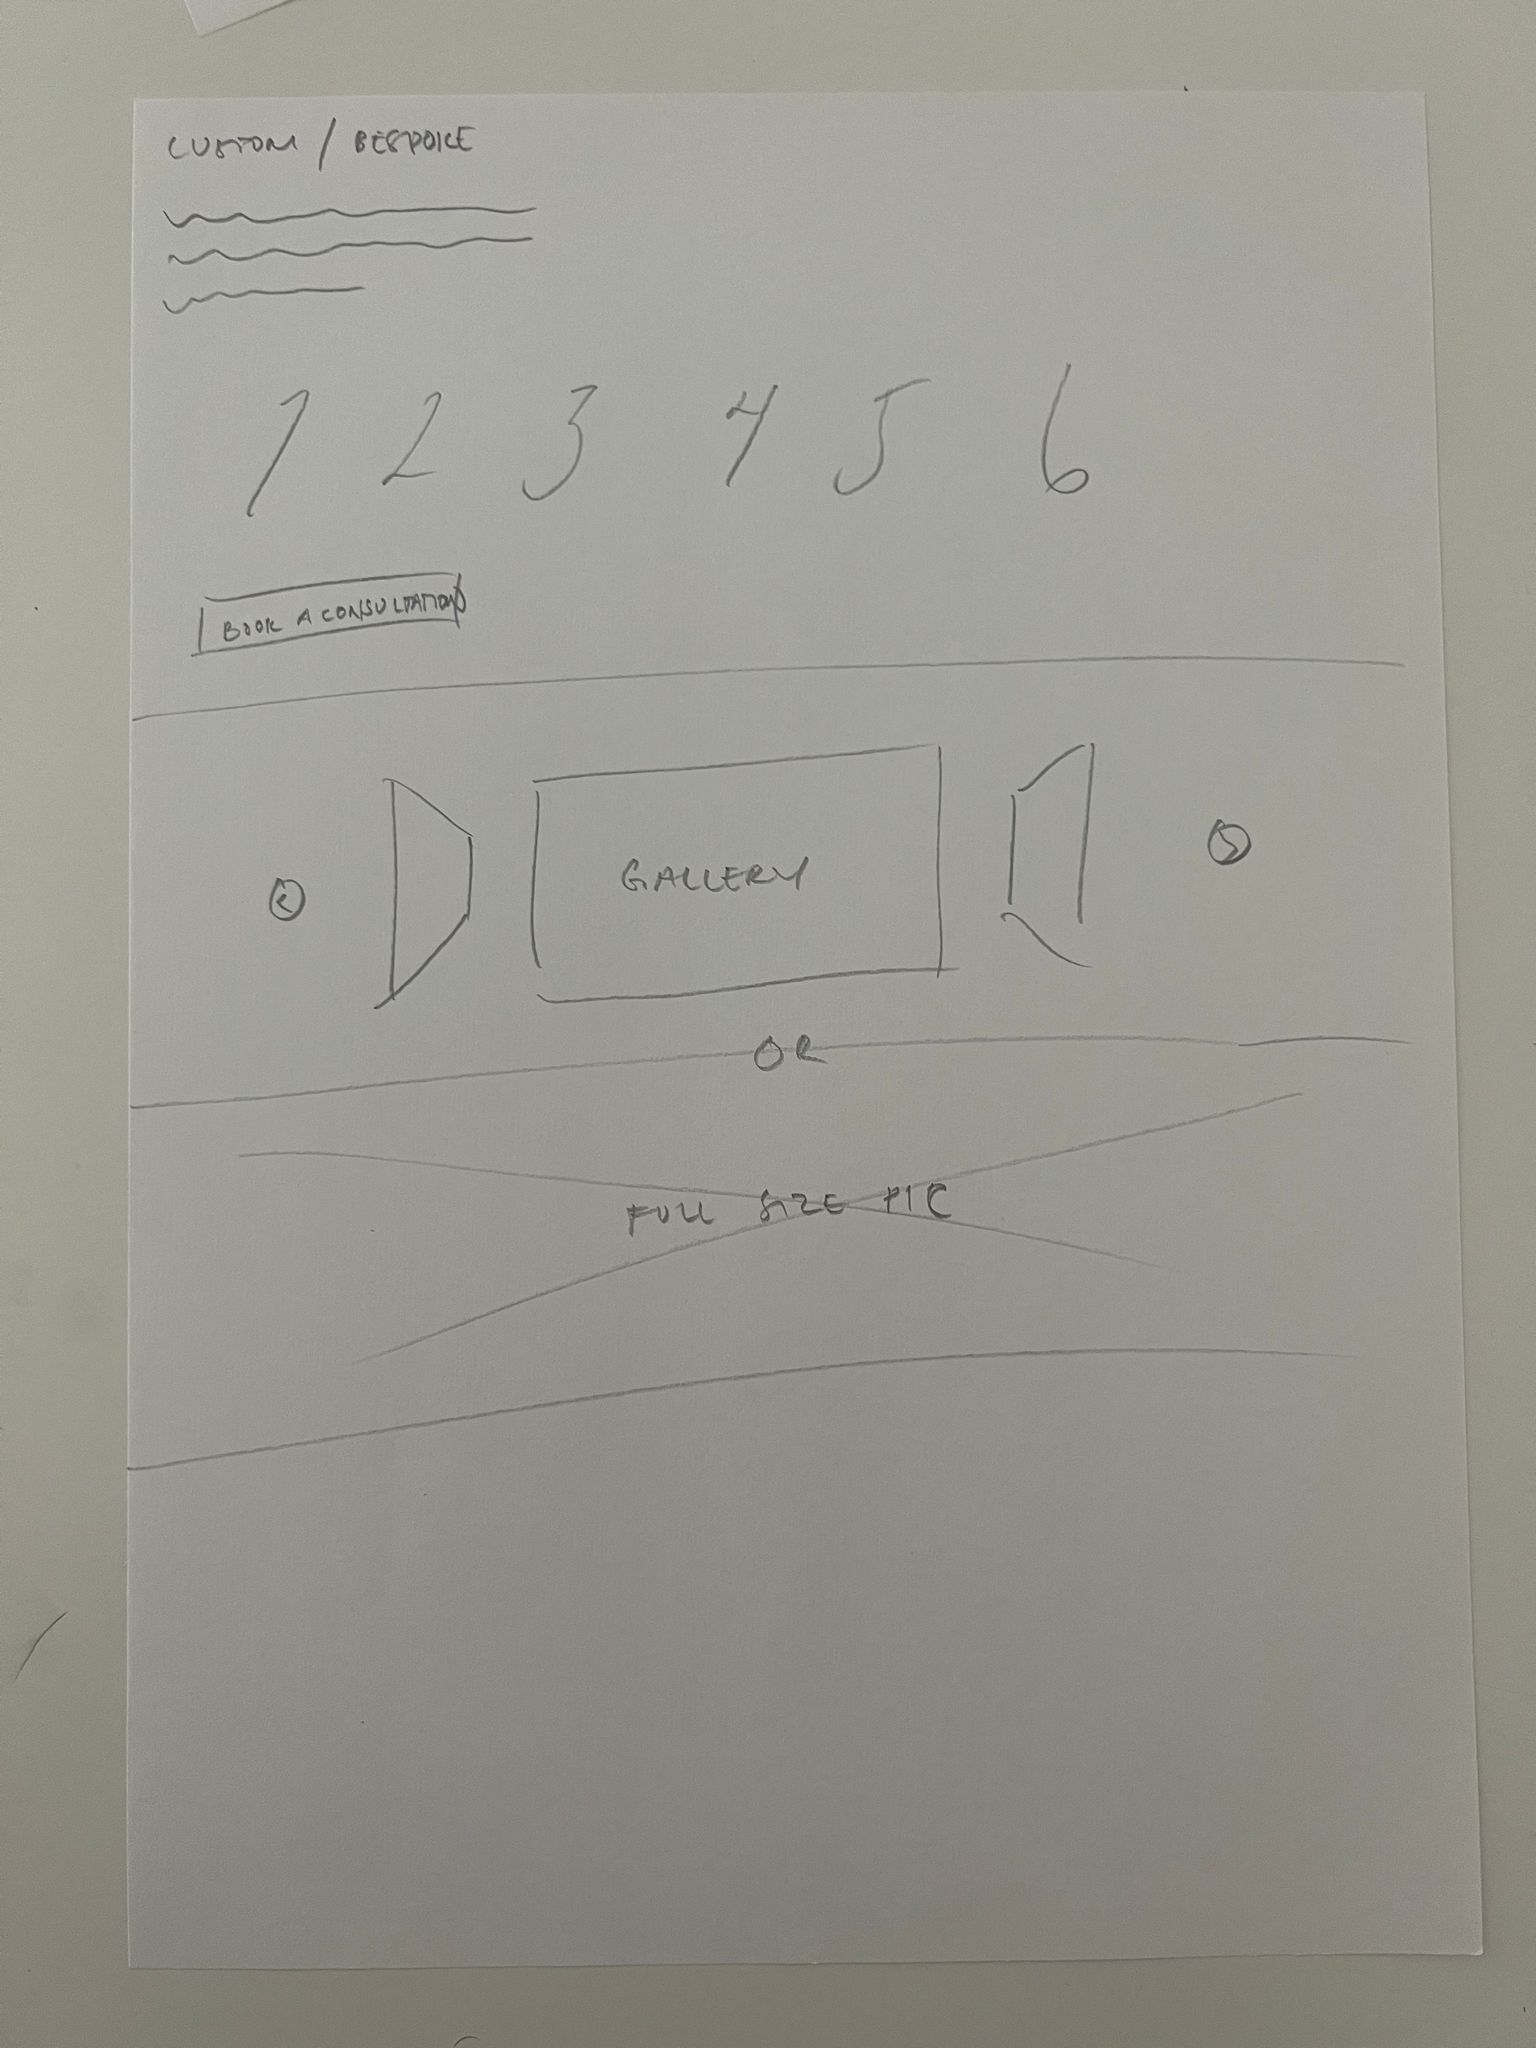 CUSTOM / BESPOKE
1 2 3 4 5 6
BOOK A CONSULTATION
GALLERY
OR
FULL SIZE PIC